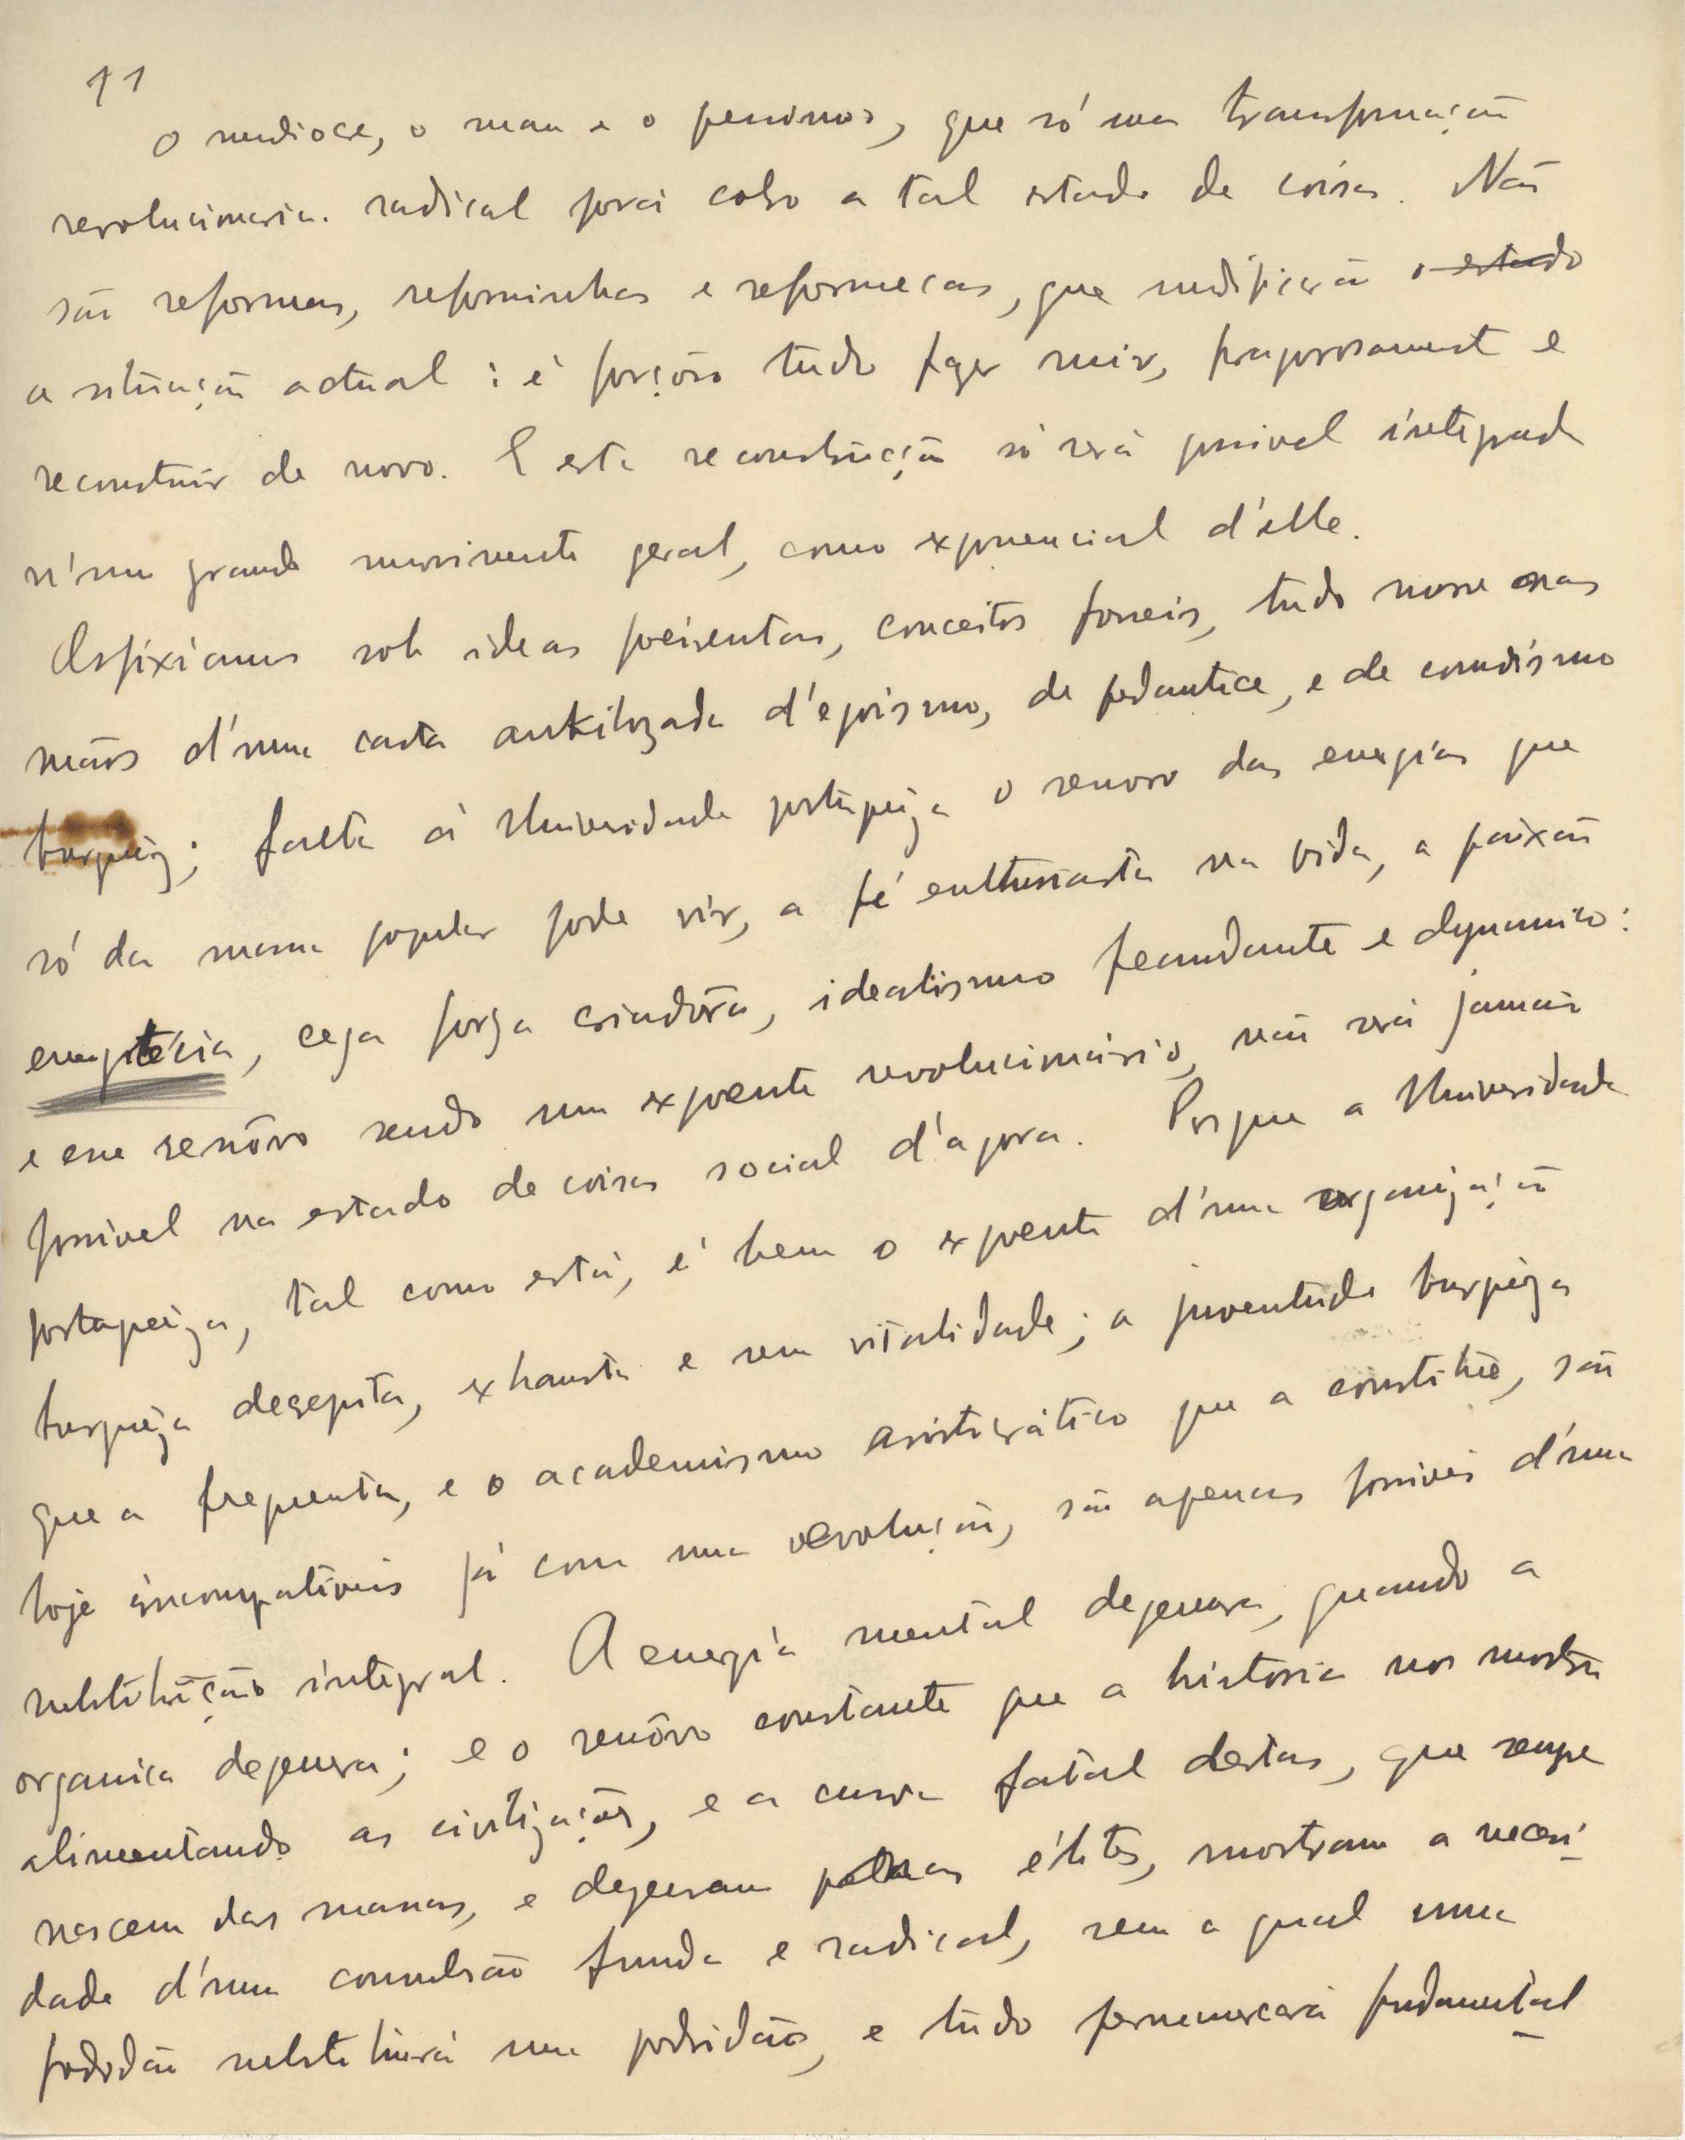 11
O mediocre, o mau e o pessimos, que só uma transformação
revolucionaria radical porá cobro a tal estado de coisas. Não
são reformas, reforminhas e reformecas, que modificarão o estado
a situação actual: é forçôso tudo fazer ruir, fragorosamente e
reconstruir de novo. E esta reconstrução só será possivel integrada
n'um grande movimento geral, como exponencial d'elle.
Asfixiamos sob ideas poeirentas, conceitos fosseis, tudo nas
mãos d'uma casta ankilozada d'egoismo, de pedantice, e de comodismo
burguêz; falta á Universidade portuguêza o renovo das energias que
só da massa popular pode vir, a fé enthusiasta na vida, a paixão
, cega força criadôra, idealismo fecundante e dynamico:
e esse renôvo sendo um expoente revolucionário, não será jamais
possivel no estado de coisas social d'agora. Porque a Universidade
portugueiza, tal como está, é bem o expoente d'uma organização
burguêza decrepita, exhausta e sem vitalidade; a juventude burguêza
que a frequenta, e o academismo aristocrático que a constitúe, são
hoje incompatíveis já com uma revolução, são apenas possiveis d'uma
substituição integral. A energia mental degenera, quando a
organica degenera; e o renôvo constante que a historia nos mostra
alimentando as civilizações, e a curva fatal destas, que sempre
nascem das massas, e degeneram pelas élites, mostram a necessi-
dade d'uma convulsão funda e radical, sem a qual uma
podridão substituirá uma podridão, e tudo permanecerá fundamental